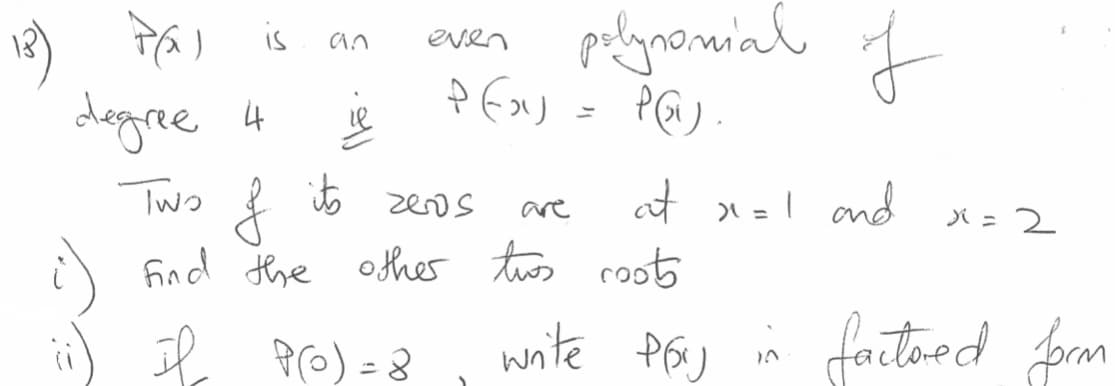 18) P(x) is an even polynomial of
degree 4 ie P(-x) = P(x).
Two of its zeros are at x = 1 and x = 2
i) Find the other two roots
ii) If P(0) = 8, write P(x) in factored form